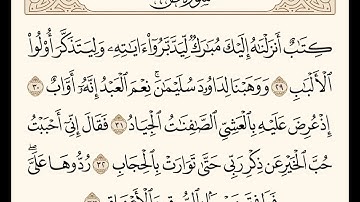 كِتَٰبٌ أَنزَلْنَٰهُ إِلَيْكَ مُبَٰرَكٌ لِّيَدَّبَّرُوٓا۟ ءَايَٰتِهِۦ وَلِيَتَذَكَّرَ أُو۟لُوا۟
ٱلْأَلْبَٰبِ ٢٩ وَوَهَبْنَا لِدَاوُۥدَ سُلَيْمَٰنَ ۚ نِعْمَ ٱلْعَبْدُ إِنَّهُۥٓ أَوَّابٌ ٣٠
إِذْ عُرِضَ عَلَيْهِ بِٱلْعَشِىِّ ٱلصَّٰفِنَٰتُ ٱلْجِيَادُ ٣١ فَقَالَ إِنِّىٓ أَحْبَبْتُ
حُبَّ ٱلْخَيْرِ عَن ذِكْرِ رَبِّى حَتَّىٰ تَوَارَتْ بِٱلْحِجَابِ ٣٢ رُدُّوهَا عَلَىَّ ۖ